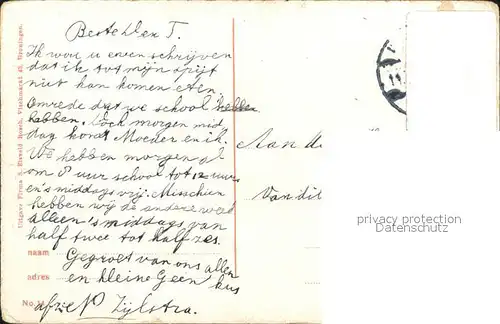 Beste Hlen T.
Ik wou u even schrijven
dat ik tot mijn spijt
niet kan komen eten.
omrede dat we school hebben
hebben. Doch morgen mid
dag komt Moeder en ik.
We hebben morgen al
om 8 uur school tot 12 uur
en 's middags vrij. Misschien
hebben wij de andere week
alleen 's middags van
half twee tot half zes.
Gegroet van ons allen
en kleine Geen kus
afz. N Zijlstra.
naam
adres
No.
Uitgave Firma R. Vischmarkt Groningen.
Aan
Van
11
privacy protection
Datenschutz